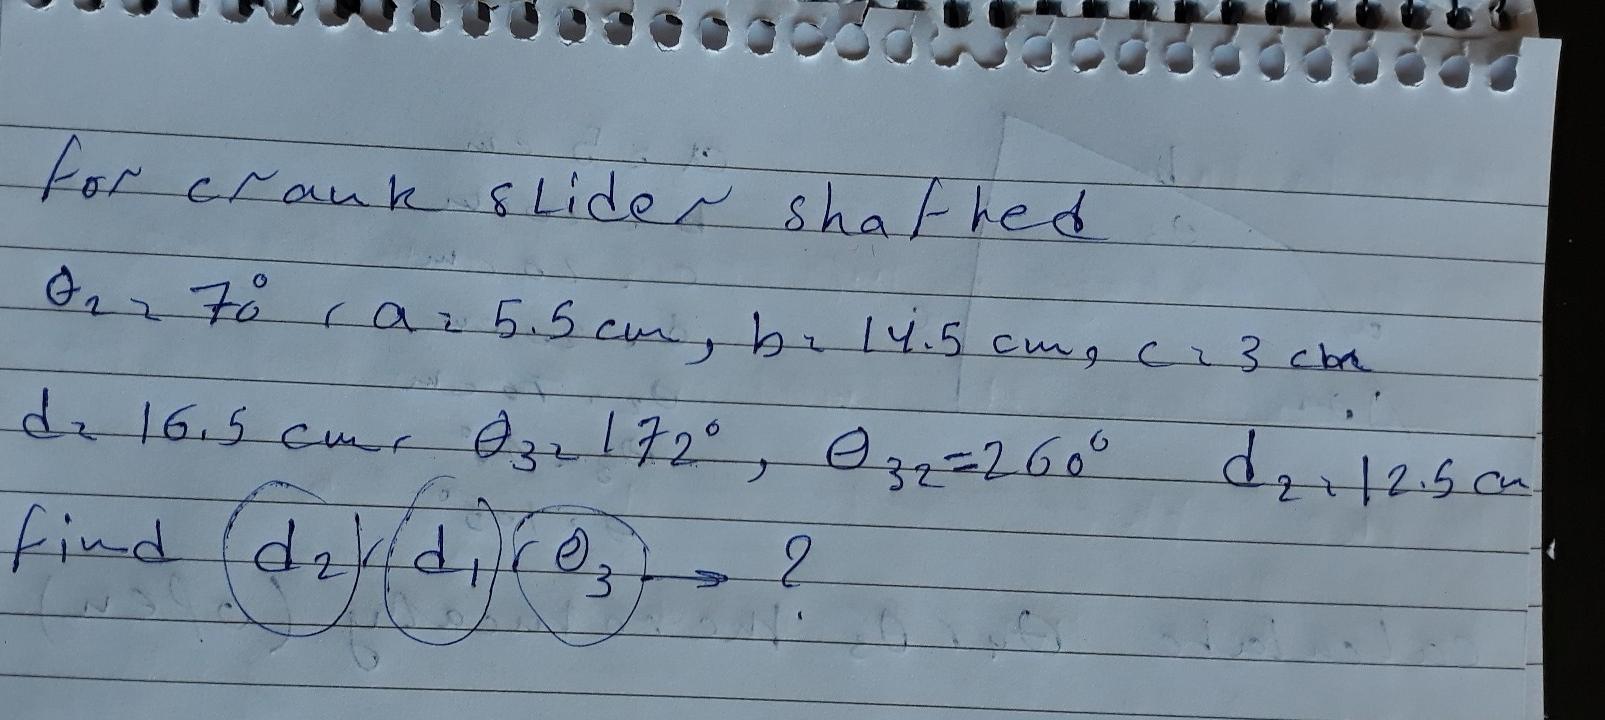 For crank slider shafted
θ₂ = 70°, a = 5.5 cm, b = 14.5 cm, c = 3 cm
d = 16.5 cm, θ₃ = 172°, θ₃₂ = 260° d₂ = 12.5 cm
find d₂, d₁, θ₃ → ?